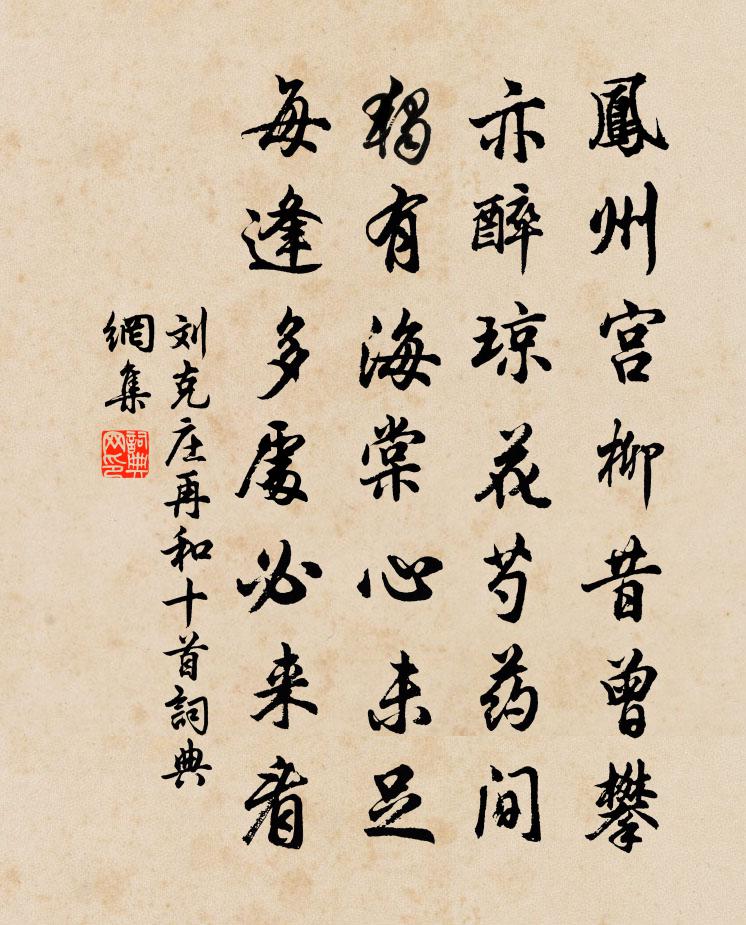 鳳州宫柳昔曾攀
亦醉琼花芍药间
独有海棠心未足
每逢多處必来看
刘克庄再和十首詞典
網集
詞典
网印